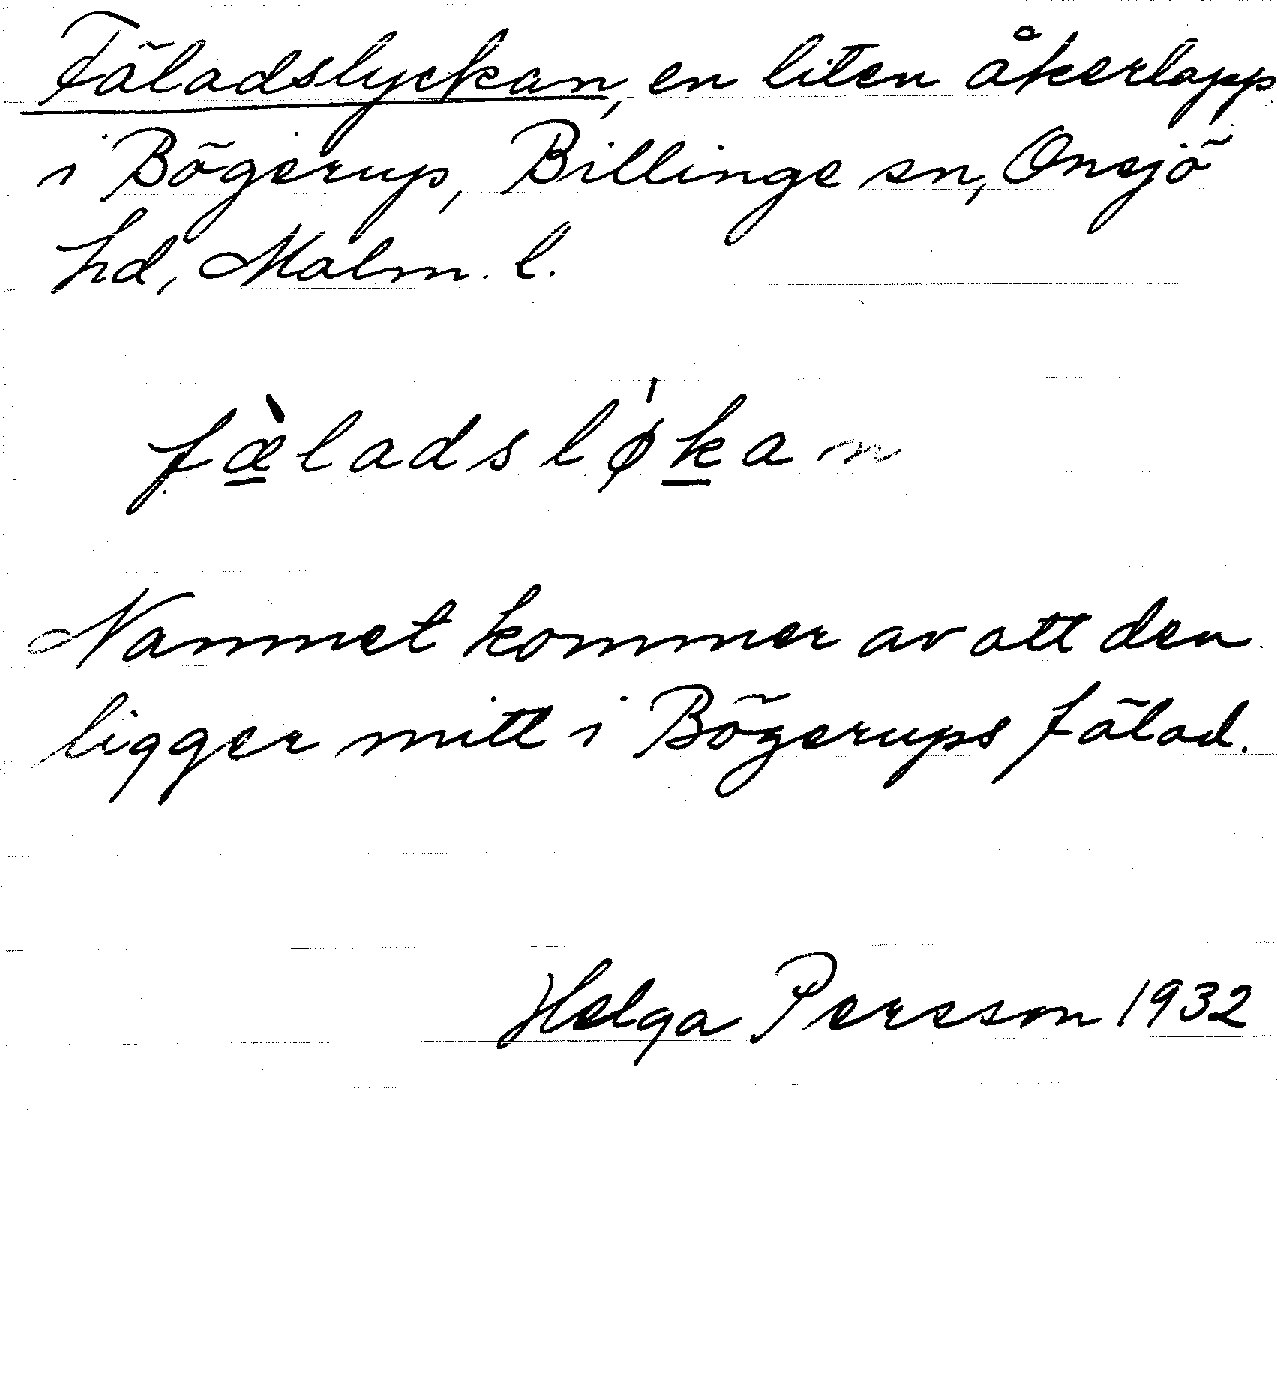 Fäladslyckan, en liten åkerlapp
i Bögerup, Billinge sn, Onsjö
hd, Malm. l.
fæ̀ladslǿkan
Namnet kommer av att den
ligger mitt i Bögerups fälad.
Helga Persson 1932